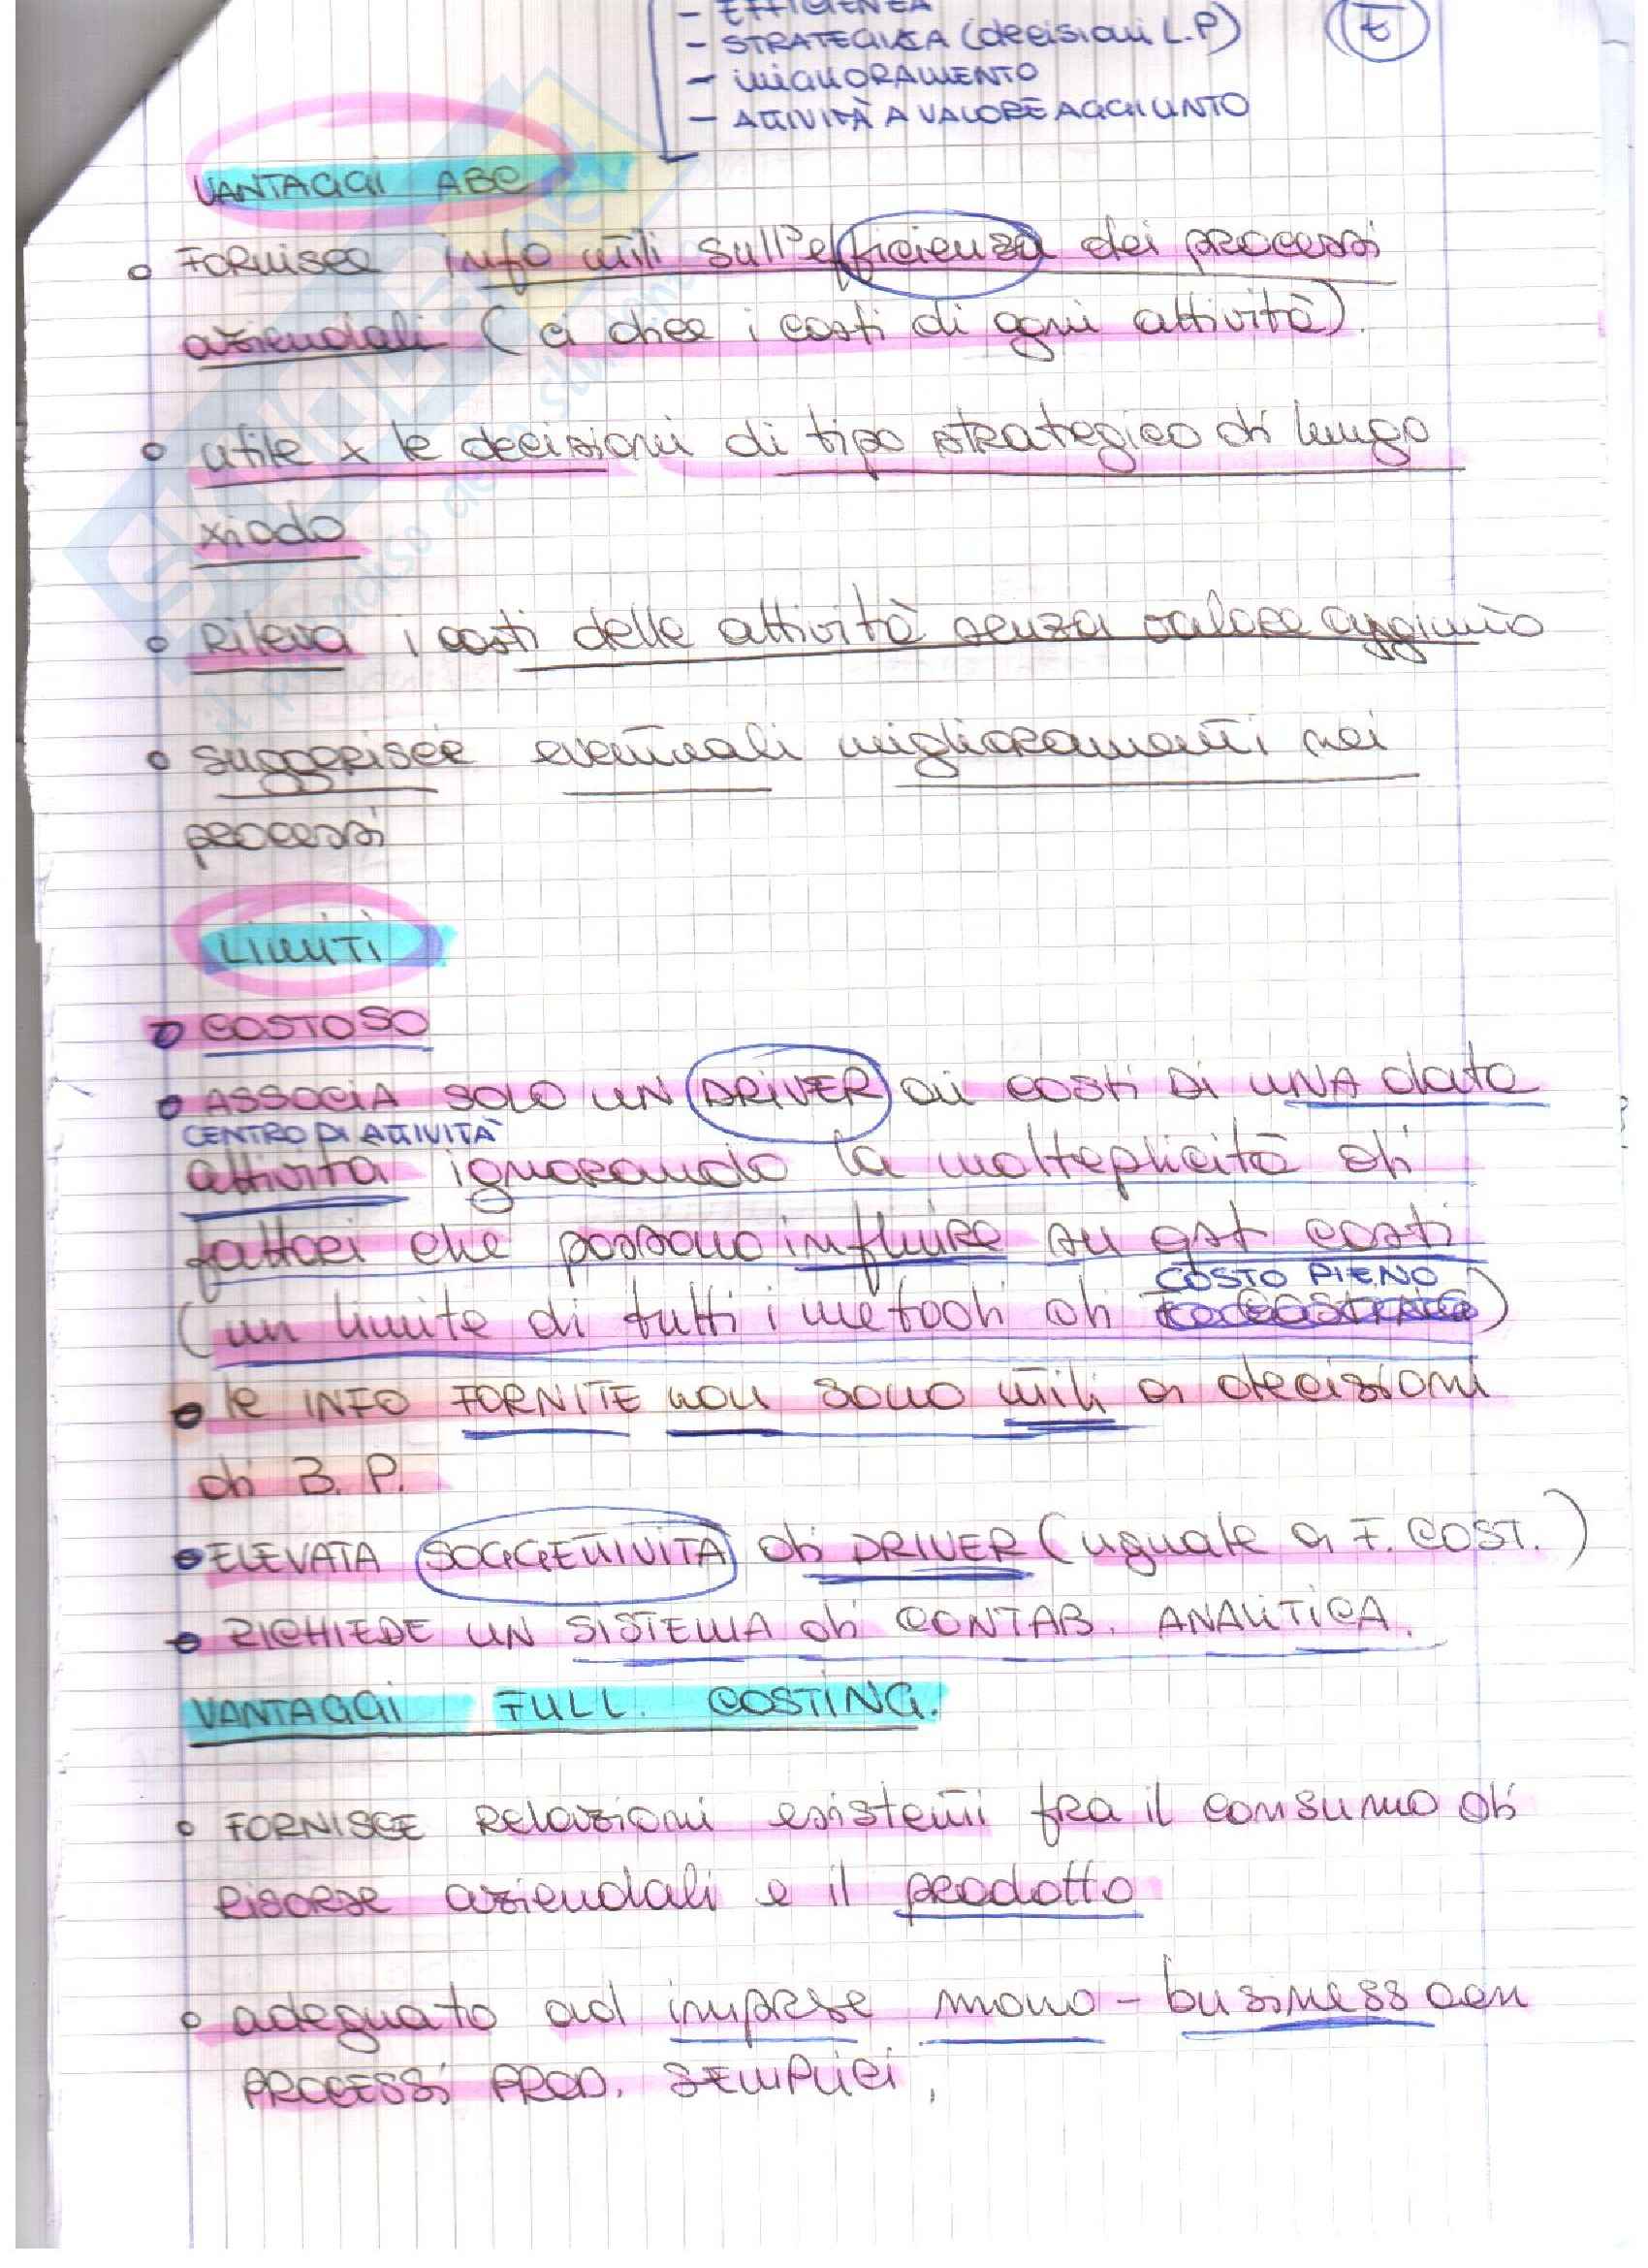 - EFFICIENZA
- STRATEGICA (decisioni L.P)
- MIGLIORAMENTO
- ATTIVITÀ A VALORE AGGIUNTO
VANTAGGI ABC
FORNISCE info utili sull'efficienza dei processi
aziendali (ci dice i costi di ogni attività).
utile x le decisioni di tipo strategico di lungo
xiodo
Rileva i costi delle attività senza valore aggiunto
suggerisce eventuali miglioramenti nei
processi
LIMITI
COSTOSO
ASSOCIA SOLO UN DRIVER ai costi di UNA data
CENTRO DI ATTIVITÀ
attività ignorando la molteplicità di
fattori che possono influire su qst costi
COSTO PIENO
(un limite di tutti i metodi di )
le INFO FORNITE non sono utili a decisioni
di B. P.
ELEVATA SOGGETTIVITÀ di DRIVER (uguale a F. COST.)
RICHIEDE UN SISTEMA di CONTAB. ANALITICA.
VANTAGGI FULL. COSTING.
FORNISCE Relazioni esistenti fra il consumo di
risorse aziendali e il prodotto
adeguato ad imprese mono - business con
PROCESSI PROD. SEMPLICI.